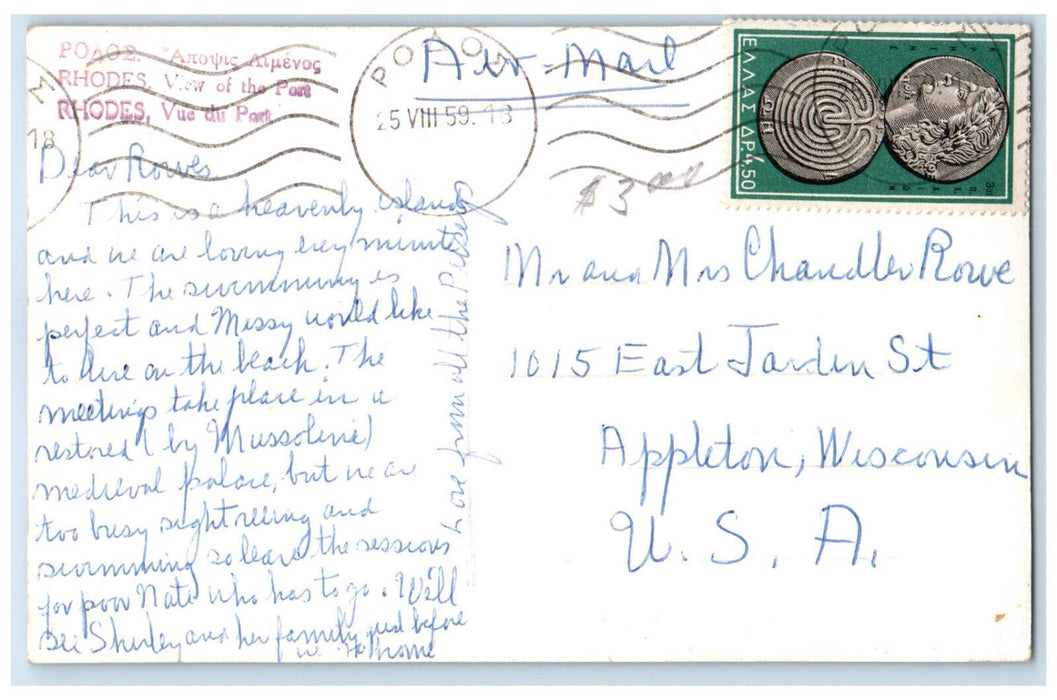 ΡΟΔΟΣ. Ἄποψις Λιμένος
RHODES, View of the Port
RHODES, Vue du Port
ΡΟΔΟΣ
25 VIII 59. 18
M
18
Air-Mail
ΕΛΛΑΣ ΔΡ. 4,50
$3.00
Dear Rowes
This is a heavenly island
and we are loving every minute
here. The swimming is
perfect and Missy would like
to live on the beach. The
meetings take place in a
restored (by Mussolini)
medieval palace, but we are
too busy sightseeing and
swimming so leave the sessions
for poor Nate who has to go. We'll
see Shirley and her family just before
we home
Love from all the
Mr and Mrs Chandler Rowe
1015 East Jardin St
Appleton, Wisconsin
U. S. A.